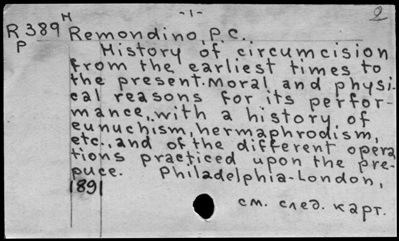 H -1- 2
R389 Remondino, P.C.
P History of circumcision
from the earliest times to
the present. Moral and physi-
cal reasons for its perfor-
mance, with a history of
eunuchism, hermaphrodism,
etc., and of the different opera
tions practiced upon the pre-
puce. Philadelphia-London,
1891
см. след. карт.